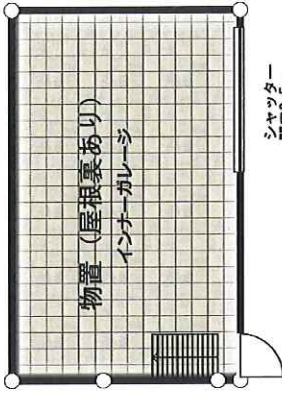 物置（屋根裏あり）
インナーガレージ
シャッター